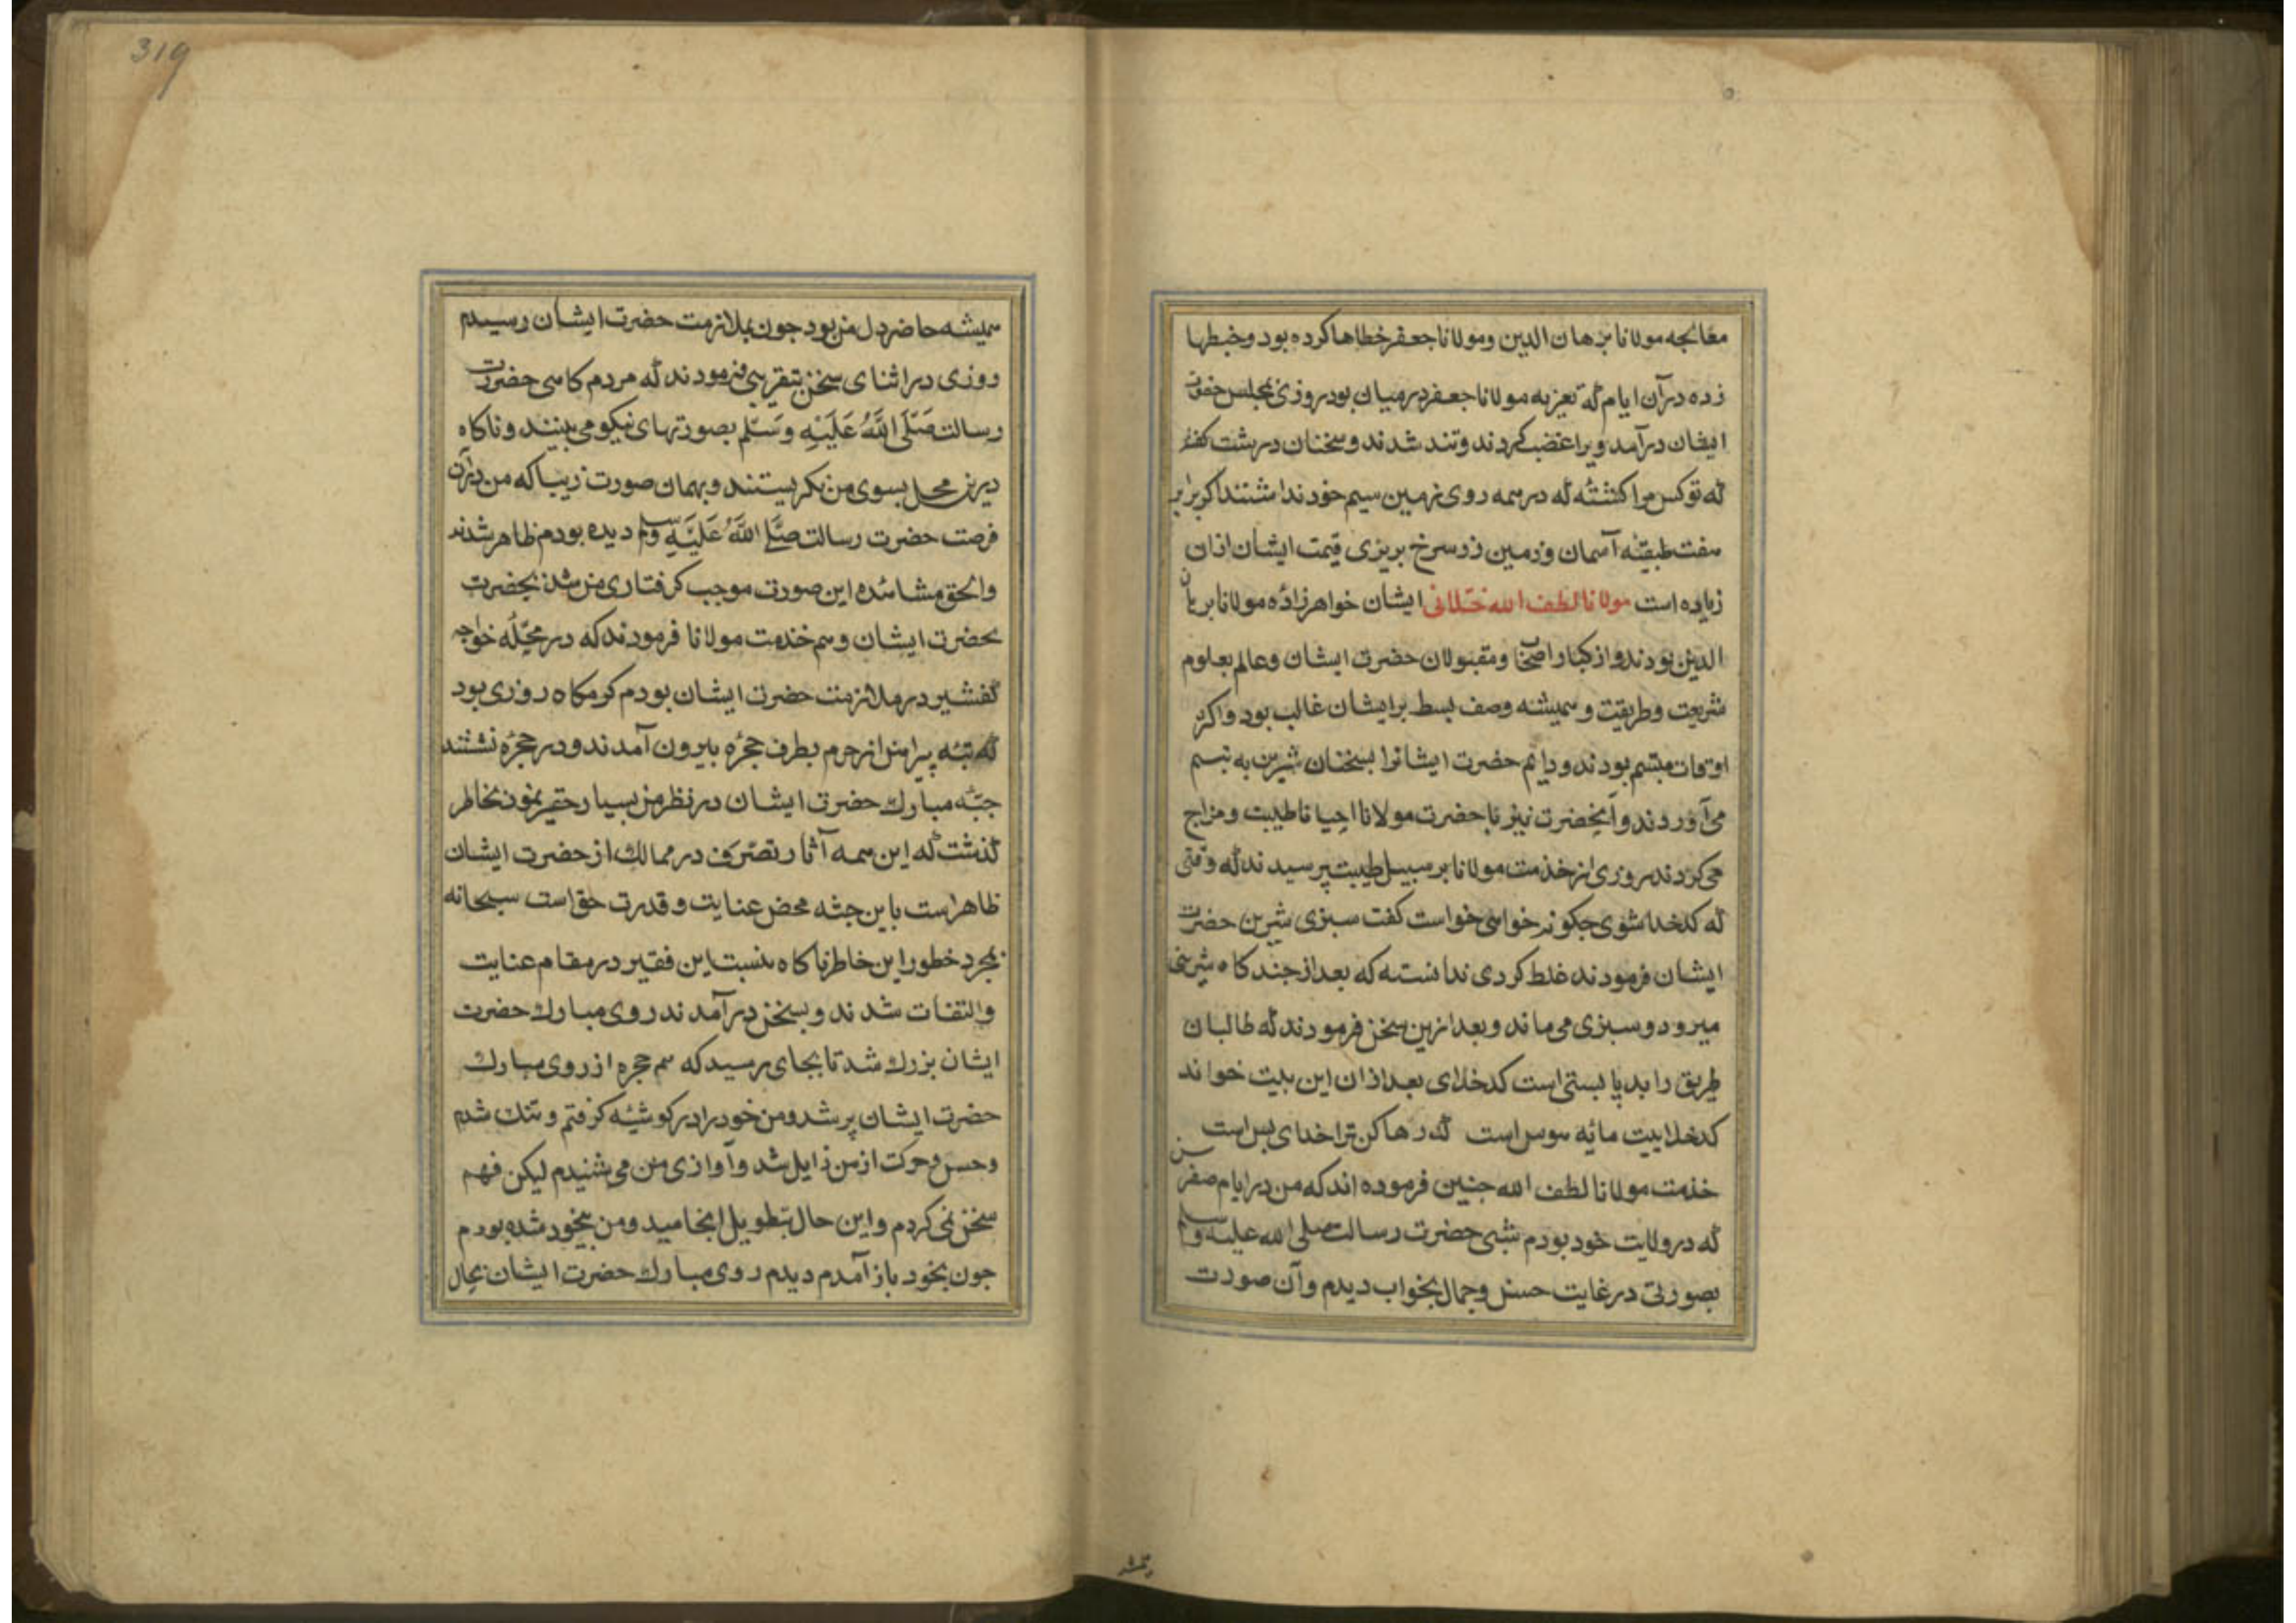 معالجه مولانا برهان الدین ومولانا جعفر خطاها کرده بود وخبطها
زده در آن ایام که تعزیه مولانا جعفر در میان بود روزی بمجلس حضرت
ایشان در آمد ویرا غضب کردند وتند شدند وسخنان درشت کفتند
که تو کس مرا کشتهٔ که در همه روی زمین سیم خود نداشتند اکر برابر
هفت طبقهٔ آسمان وزمین زر سرخ بریزی قیمت ایشان ازان
زیاده است مولانا لطف الله ختلانی ایشان خواهرزادهٔ مولانا برهان
الدین بودند واز کبار اصحاب ومقبولان حضرت ایشان وعالم بعلوم
شریعت وطریقت وهمیشه وصف بسط بر ایشان غالب بود واکثر
اوقات متبسم بودند ودایم حضرت ایشانرا بسخنان شیرین به تبسم
می‌آوردند وآنحضرت نیز با حضرت مولانا احیانا طیبت ومزاح
می‌کردند روزی از خدمت مولانا بر سبیل طیبت پرسیدند که وقتی
که کدخدا شوی جکونه خواهی خواست کفت سبزی شیرین حضرت
ایشان فرمودند غلط کردی ندانستهٔ که بعد از جندکاه شیرینی
میرود وسبزی می‌ماند وبعد ازین سخن فرمودند که طالبان
طریق را بد پا بستی است کدخدای بعد ازان این بیت خواند
کدخداییت مایهٔ هوس است کد رها کن ترا خدای بس است
خدمت مولانا لطف الله جنین فرموده‌اند که من در ایام صغر سن
که در ولایت خود بودم شبی حضرت رسالت صلی الله علیه وسلم
بصورتی در غایت حسن وجمال بخواب دیدم وآن صورت
319
همیشه حاضر دل من بود جون بملازمت حضرت ایشان رسیدم
روزی در اثنای سخن بتقریبی فرمودند که مردم کاهی حضرت
رسالت صَلَّی اللَّهُ عَلَیْهِ وَسَلَّم بصورتهای نیکو می‌بینند وناکاه
درین محل بسوی من نکریستند وبهمان صورت زیبا که من دران
فرصت حضرت رسالت صَلَّی اللَّهُ عَلَیْهِ وسلم دیده بودم ظاهر شدند
والحق مشاهدهٔ این صورت موجب کرفتاری من شد بحضرت
بحضرت ایشان وهم خدمت مولانا فرمودند که در محلّهٔ خواجه
کفشیر در ملازمت حضرت ایشان بودم کرمکاه روزی بود
که بته پیراهن از حرم بطرف حجرهٔ بیرون آمدند ودر حجرهٔ نشستند
جثّه مبارک حضرت ایشان در نظر من بسیار حقیر نمود بخاطر
کذشت که این همه آثار تصرّف در ممالک از حضرت ایشان
ظاهر است باین جثه محض عنایت وقدرت حق است سبحانه
بمجرد خطور این خاطر ناکاه بنسبت این فقیر در مقام عنایت
والتفات شدند وبسخن در آمدند روی مبارک حضرت
ایشان بزرک شد تا بجای رسید که هم حجره از روی مبارک
حضرت ایشان پر شد ومن خود را در کوشهٔ کرفتم وتنک شدم
وحس وحرکت از من زایل شد وآوازی من می‌شنیدم لیکن فهم
سخن نمی‌کردم واین حال بتطویل انجامید ومن بیخود شده بودم
جون بخود باز آمدم دیدم روی مبارک حضرت ایشان بحال